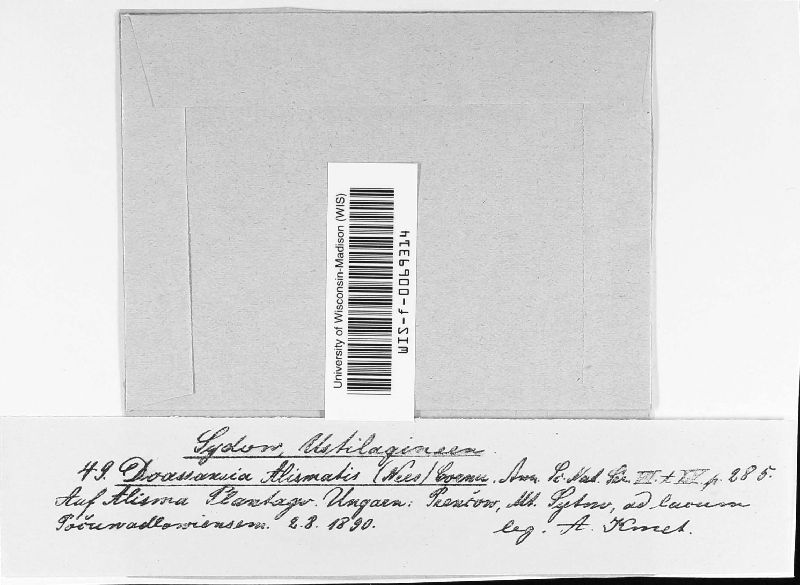 University of Wisconsin-Madison (WIS)
WIS-f-0069314
Sydow, Ustilagineen.
49. Doassansia Alismatis (Nees) Cornu. Ann. Sc. Nat. Ser. VI. t. XV p. 285.
Auf Alisma Plantago. Ungarn: Prenčow, Mt. Sytno, ad lacum
Počuwadlowiensem. 2.8.1890. leg. A. Kmet.